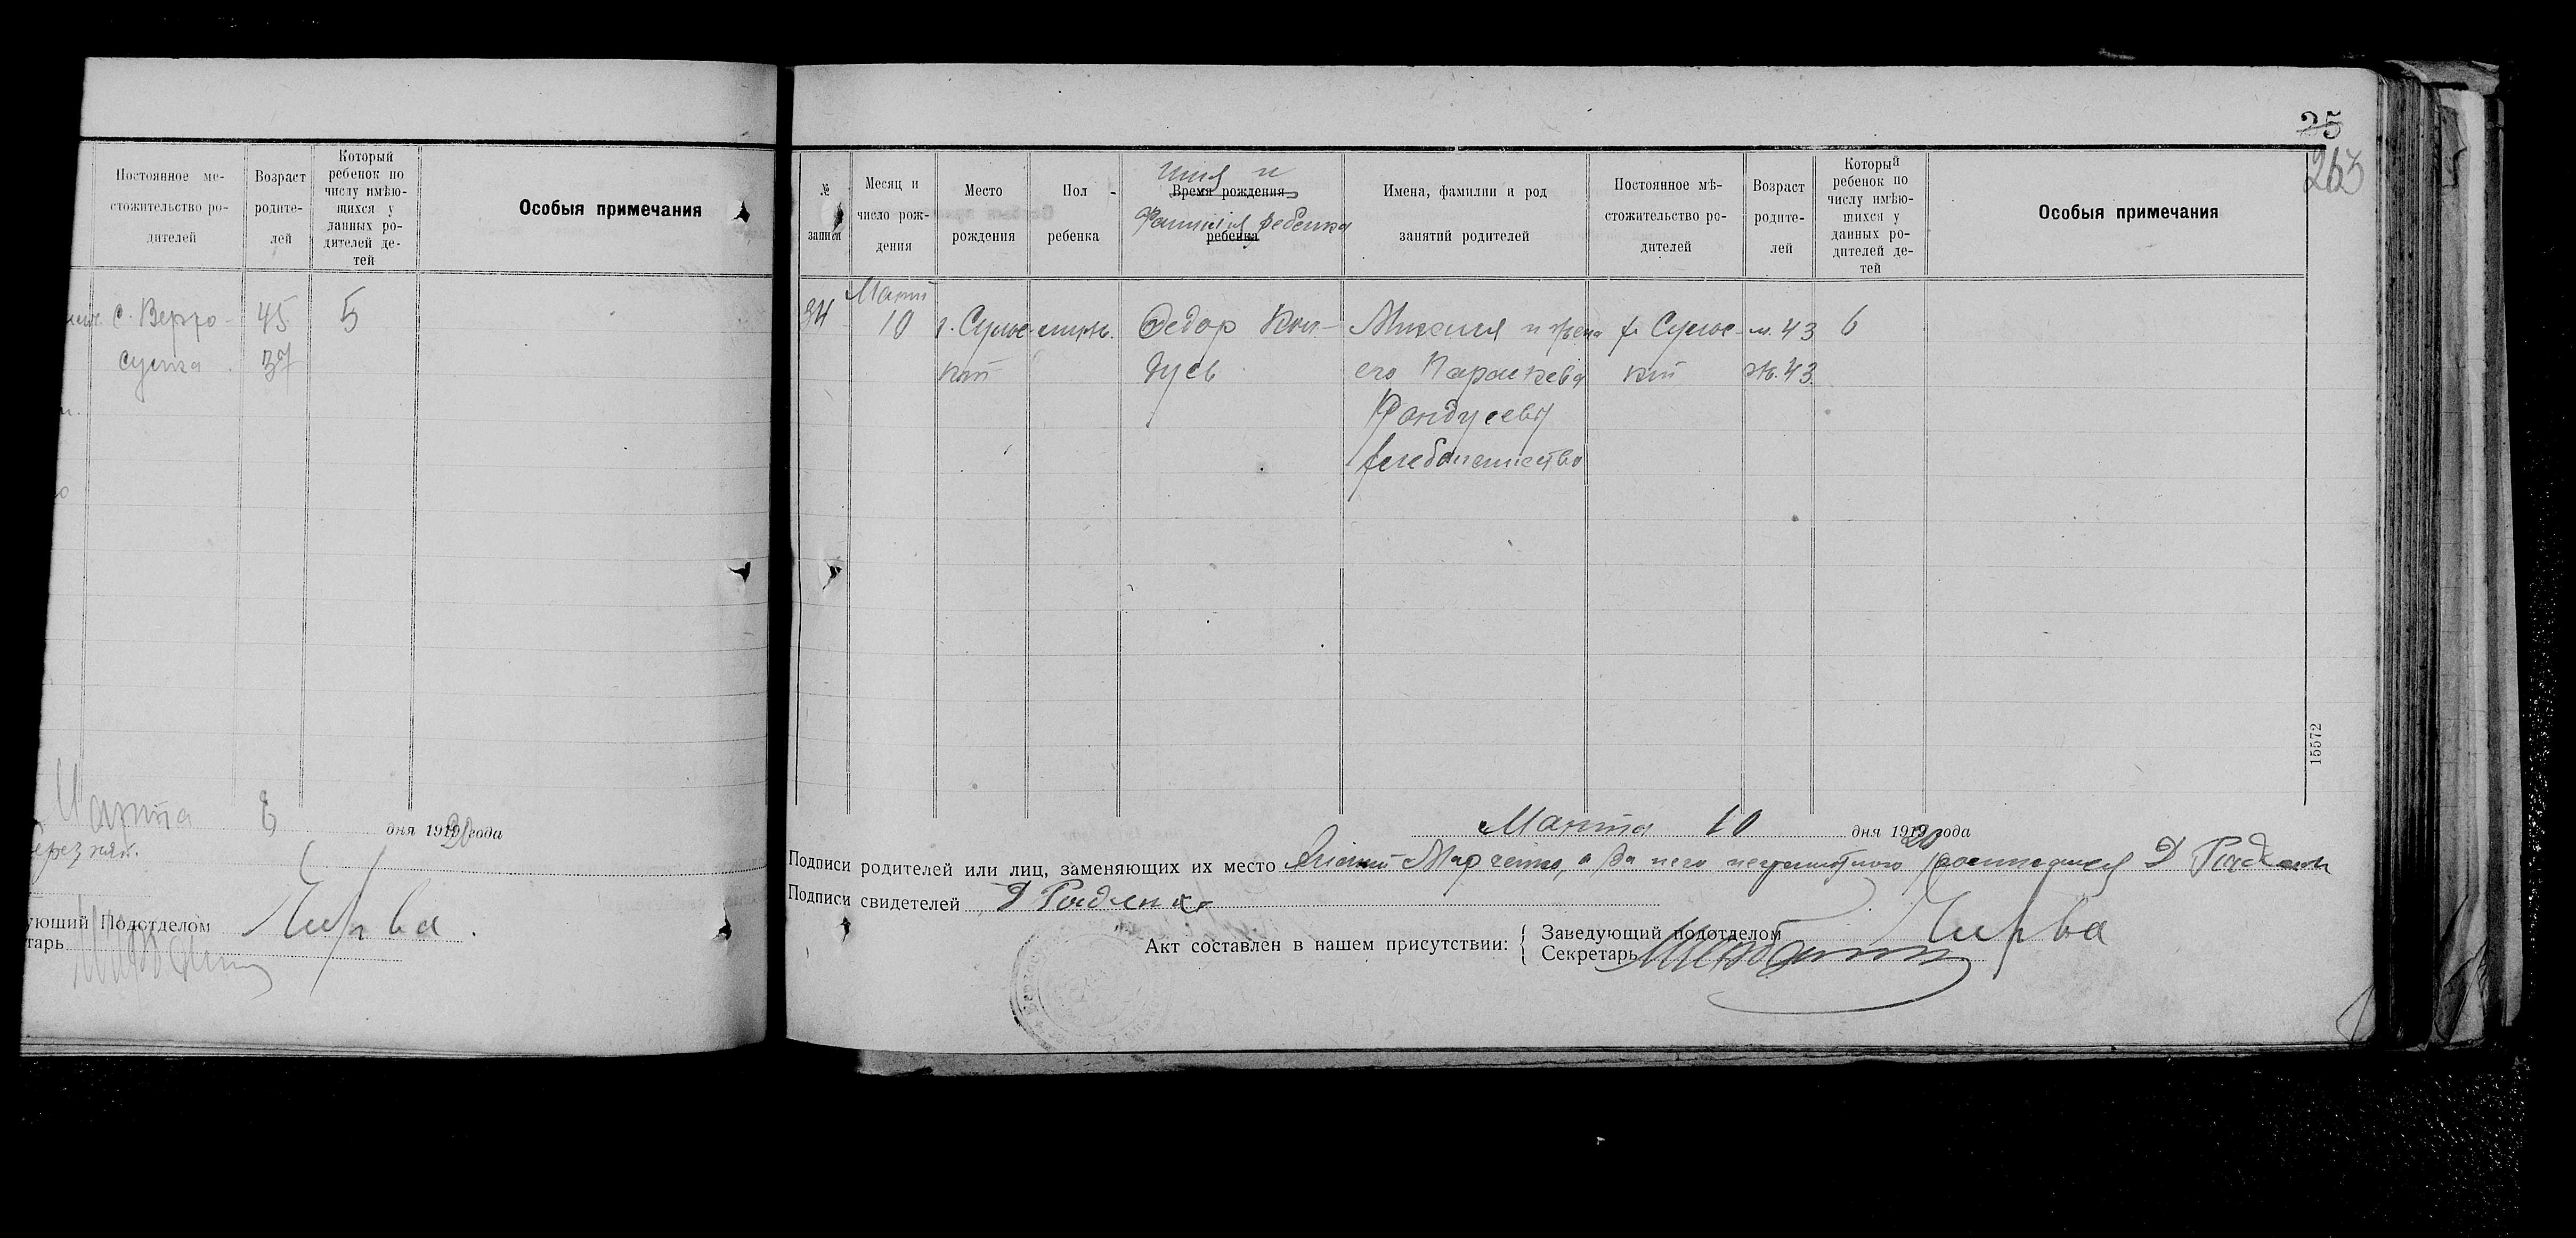 Постоянное ме-
стожительство ро-
дителей
Возраст
родите-
лей
Который
ребенок по
числу имѣю-
щихся у
данных ро-
дителей де-
тей
Особыя примечания
с. Верхо-
сулка
45
37
5
Марта 6 дня 1920 года
Подотделом Чирва
тарь
25
263
№
записи
Месяц и
число рож-
дения
Место
рождения
Пол
ребенка
Имя и
Время рождения
Фамилия ребенка
ребенка
Имена, фамилии и род
занятий родителей
Постоянное мѣ-
стожительство ро-
дителей
Возраст
родите-
лей
Который
ребенок по
числу имѣю-
щихся у
данных ро-
дителей де-
тей
Особыя примечания
34
Март
10
Федор Кон-
дусь
Михаил и жена
его Параскева
Кондусевы
хлебопашество
м. 43
ж. 43.
6
15572
Марта 10 дня 1920 года
Подписи родителей или лиц, заменяющих их место Марченко, а за него неграмотного росписался Д Радченко
Подписи свидетелей Д Радченко
Акт составлен в нашем присутствии:
Заведующий подотделом Чирва
Секретарь